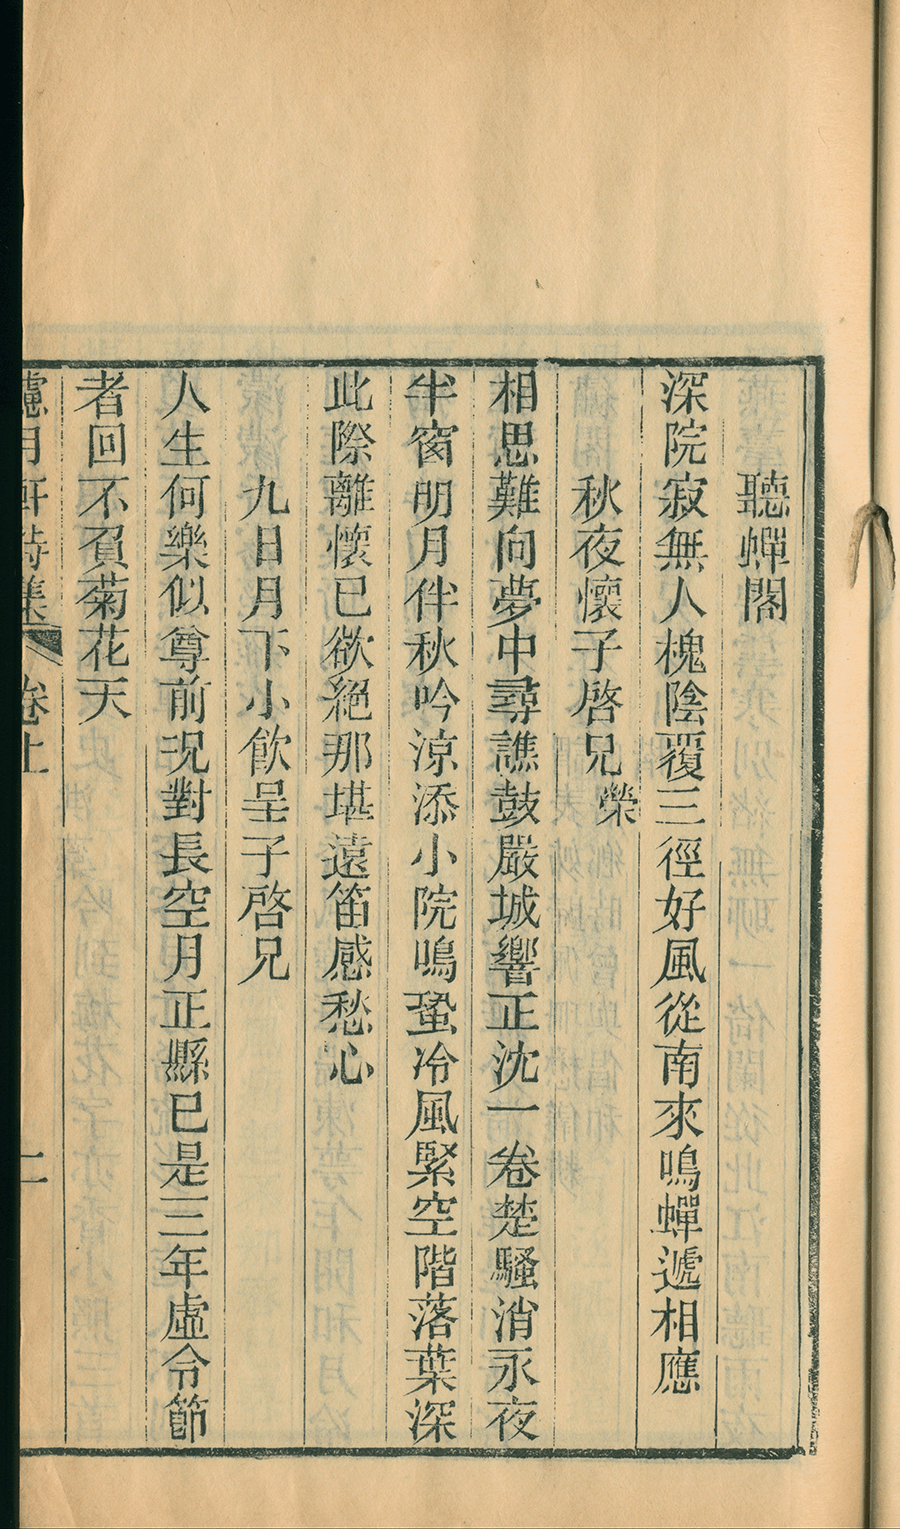 聽蟬閣
深院寂無人槐陰覆三徑好風從南來鳴蟬遞相應
秋夜懷子啓兄榮
相思難向夢中尋譙鼓嚴城響正沈一卷楚騷消永夜
半窗明月伴秋吟涼添小院鳴蛩冷風緊空階落葉深
此際離懷已欲絕那堪遠笛感愁心
九日月下小飮呈子啓兄
人生何樂似尊前況對長空月正縣已是三年虛令節
者回不負菊花天
慮月軒詩集 卷上 二